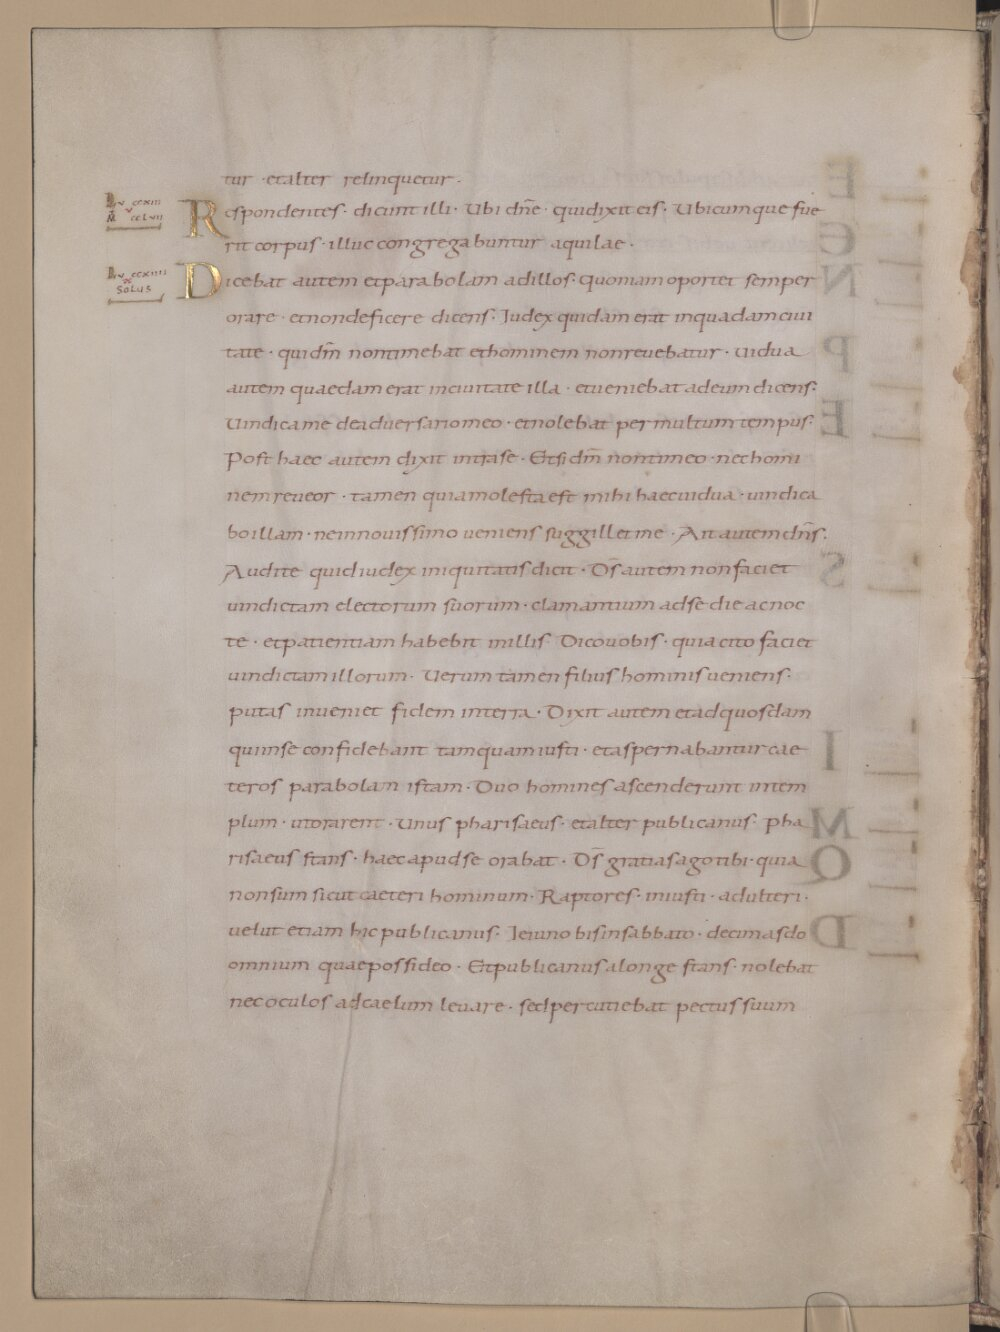 tur · etalter relinquetur ·
Lu ccxiii
M cclvii
Respondentes · dicunt illi · Ubi dn̄e · quidixit eis · Ubicumque fue
rit corpus · illuc congregabuntur aquilae ·
Lu ccxiiii
Solus
Dicebat autem etparabolam adillos · quoniam oportet semper
orare · etnondeficere dicens · Judex quidam erat inquadamciui
tate · quidm̄ nontimebat ethominem nonreuebatur · uidua
autem quaedam erat inciuitate illa · etueniebat adeum dicens ·
Uindicame deaduersariomeo · etnolebat per multum tempus ·
Post haec autem dixit intrase · Etsi dm̄ nontimeo · nec homi
nem reueor · tamen quiamolesta est mihi haecuidua · uindica
bo illam · neinnouissimo ueniens suggillet me · Ait autem dn̄s ·
Audite quid iudex iniquitatis dicit · D̄s autem non faciet
uindictam electorum suorum · clamantium adse die ac noc
te · etpatientiam habebit inillis · Dico uobis · quia cito faciet
uindictam illorum · Uerum tamen filius hominis ueniens ·
putas inueniet fidem interra · Dixit autem etadquosdam
quiinse confidebant tamquam iusti · etaspernabantur cae
teros parabolam istam · Duo homines ascenderunt intem
plum · utorarent · Unus pharisaeus · etalter publicanus · pha
risaeus stans · haec apud se orabat · D̄s gratias ago tibi · quia
nonsum sicut caeteri hominum · Raptores · iniusti · adulteri ·
uelut etiam hic publicanus · Jeiuno bis insabbato · decimas do
omnium quae possideo · Et publicanus alonge stans · nolebat
nec oculos adcaelum leuare · sed percutiebat pectus suum